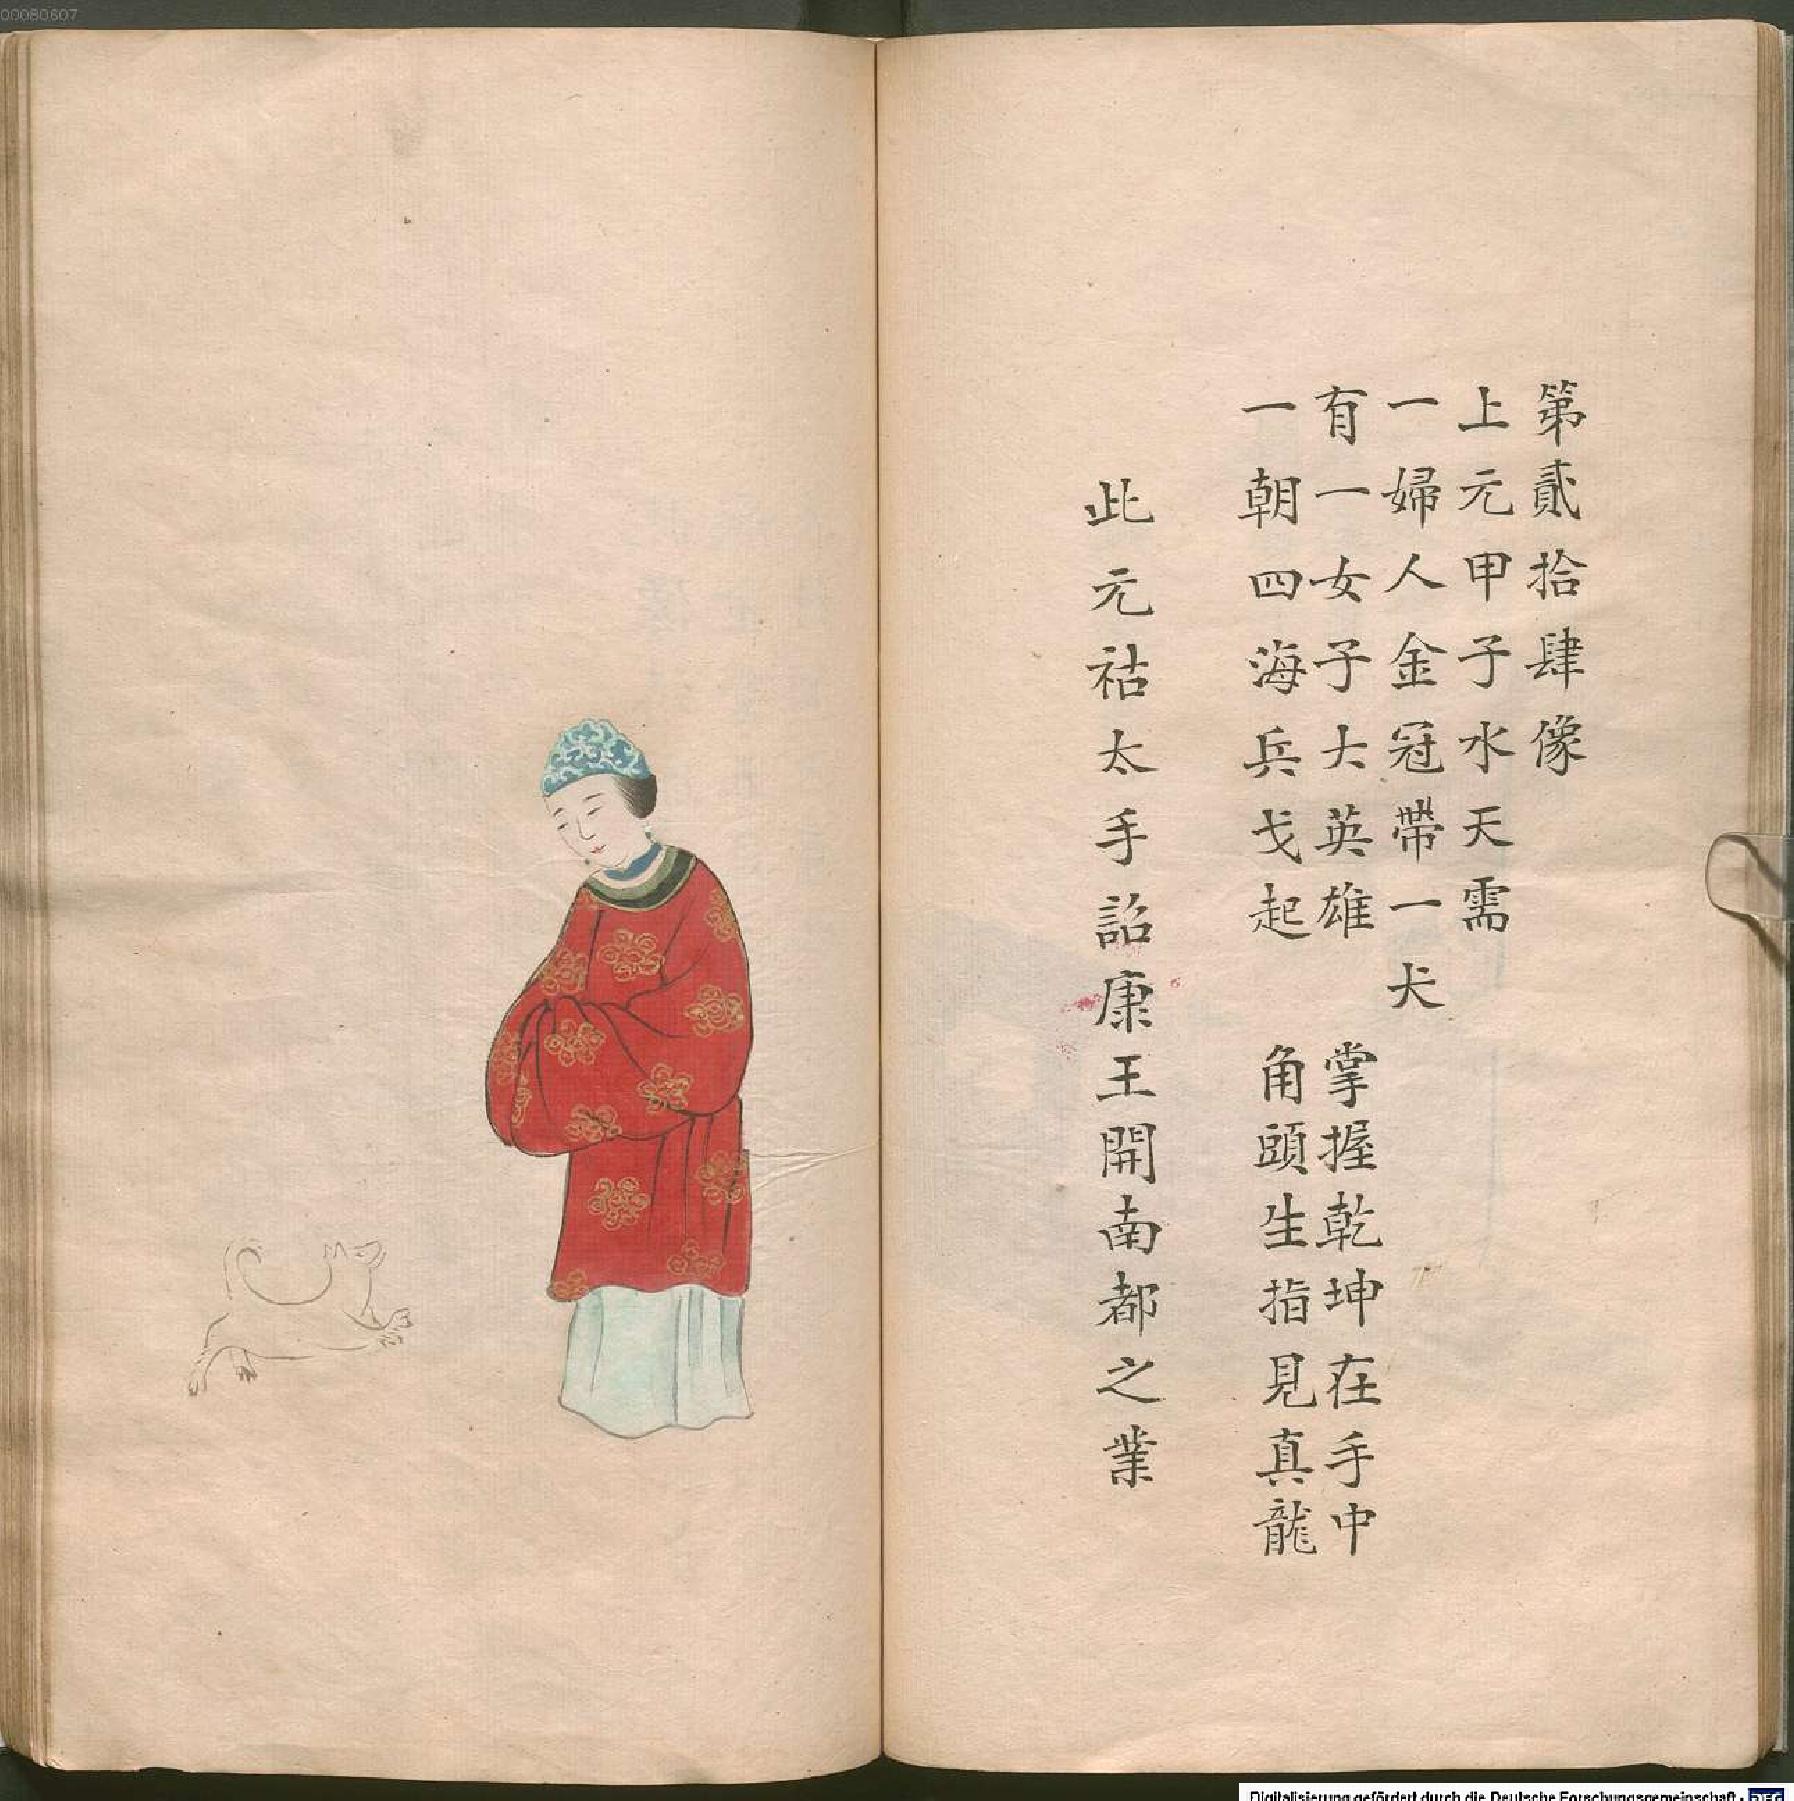 00080607
第貳拾肆像
上元甲子水天需
一婦人金冠帶一犬
有一女子大英雄　掌握乾坤在手中
一朝四海兵戈起　角頭生指見真龍
此元祜太手詔康王開南都之業
Digitalisierung gefördert durch die Deutsche Forschungsgemeinschaft - DFG